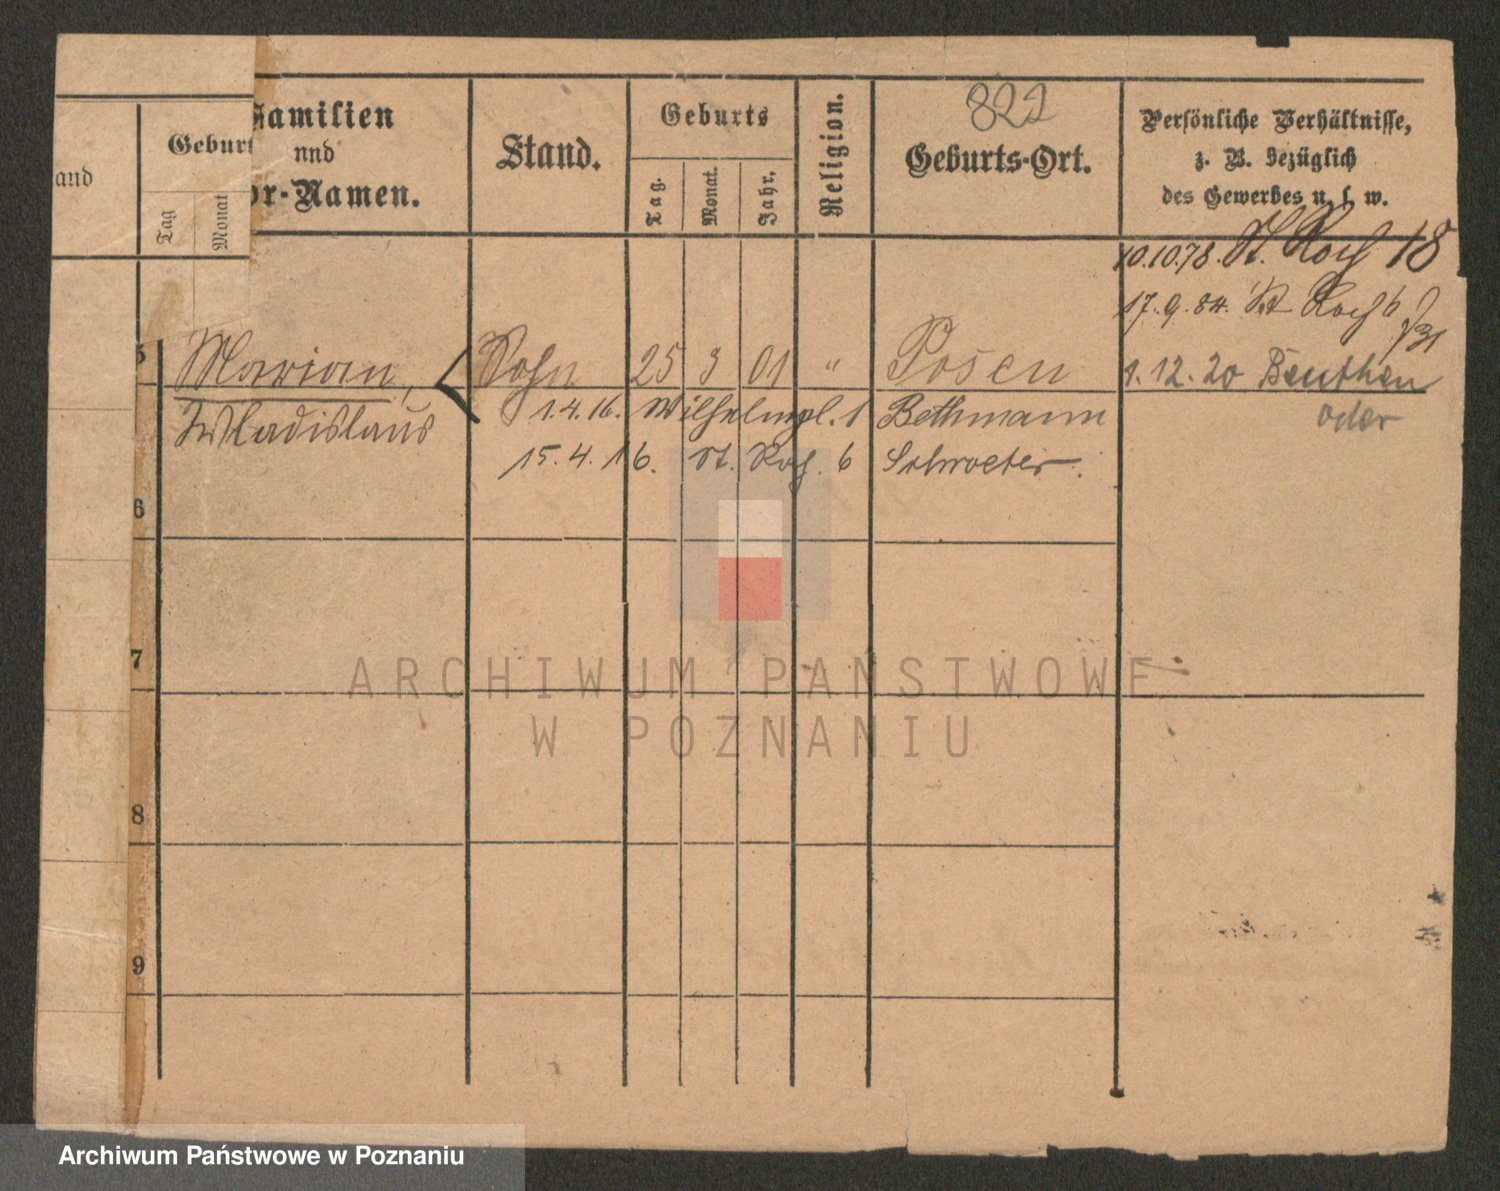 and
Geburt
Tag
Monat
Familien
nnd
or-Namen.
Stand.
Geburts
Tag.
Monat.
Jahr.
Religion.
822
Geburts-Ort.
Persönliche Verhältnisse,
z. B. bezüglich
des Gewerbes u. s. w.
10.10.78. St. Roch 18
17.9.84. St Roch 6
5 Marian, Sohn 25 3 01 " Posen
1.12.20 Beuthen
oder
Wladislaus
1.4.16. Wilhelmpl. 1 Bethmann
15.4.16. St. Roch. 6 Schroeter.
6
7
8
9
ARCHIWUM PAŃSTWOWE
W POZNANIU
Archiwum Państwowe w Poznaniu